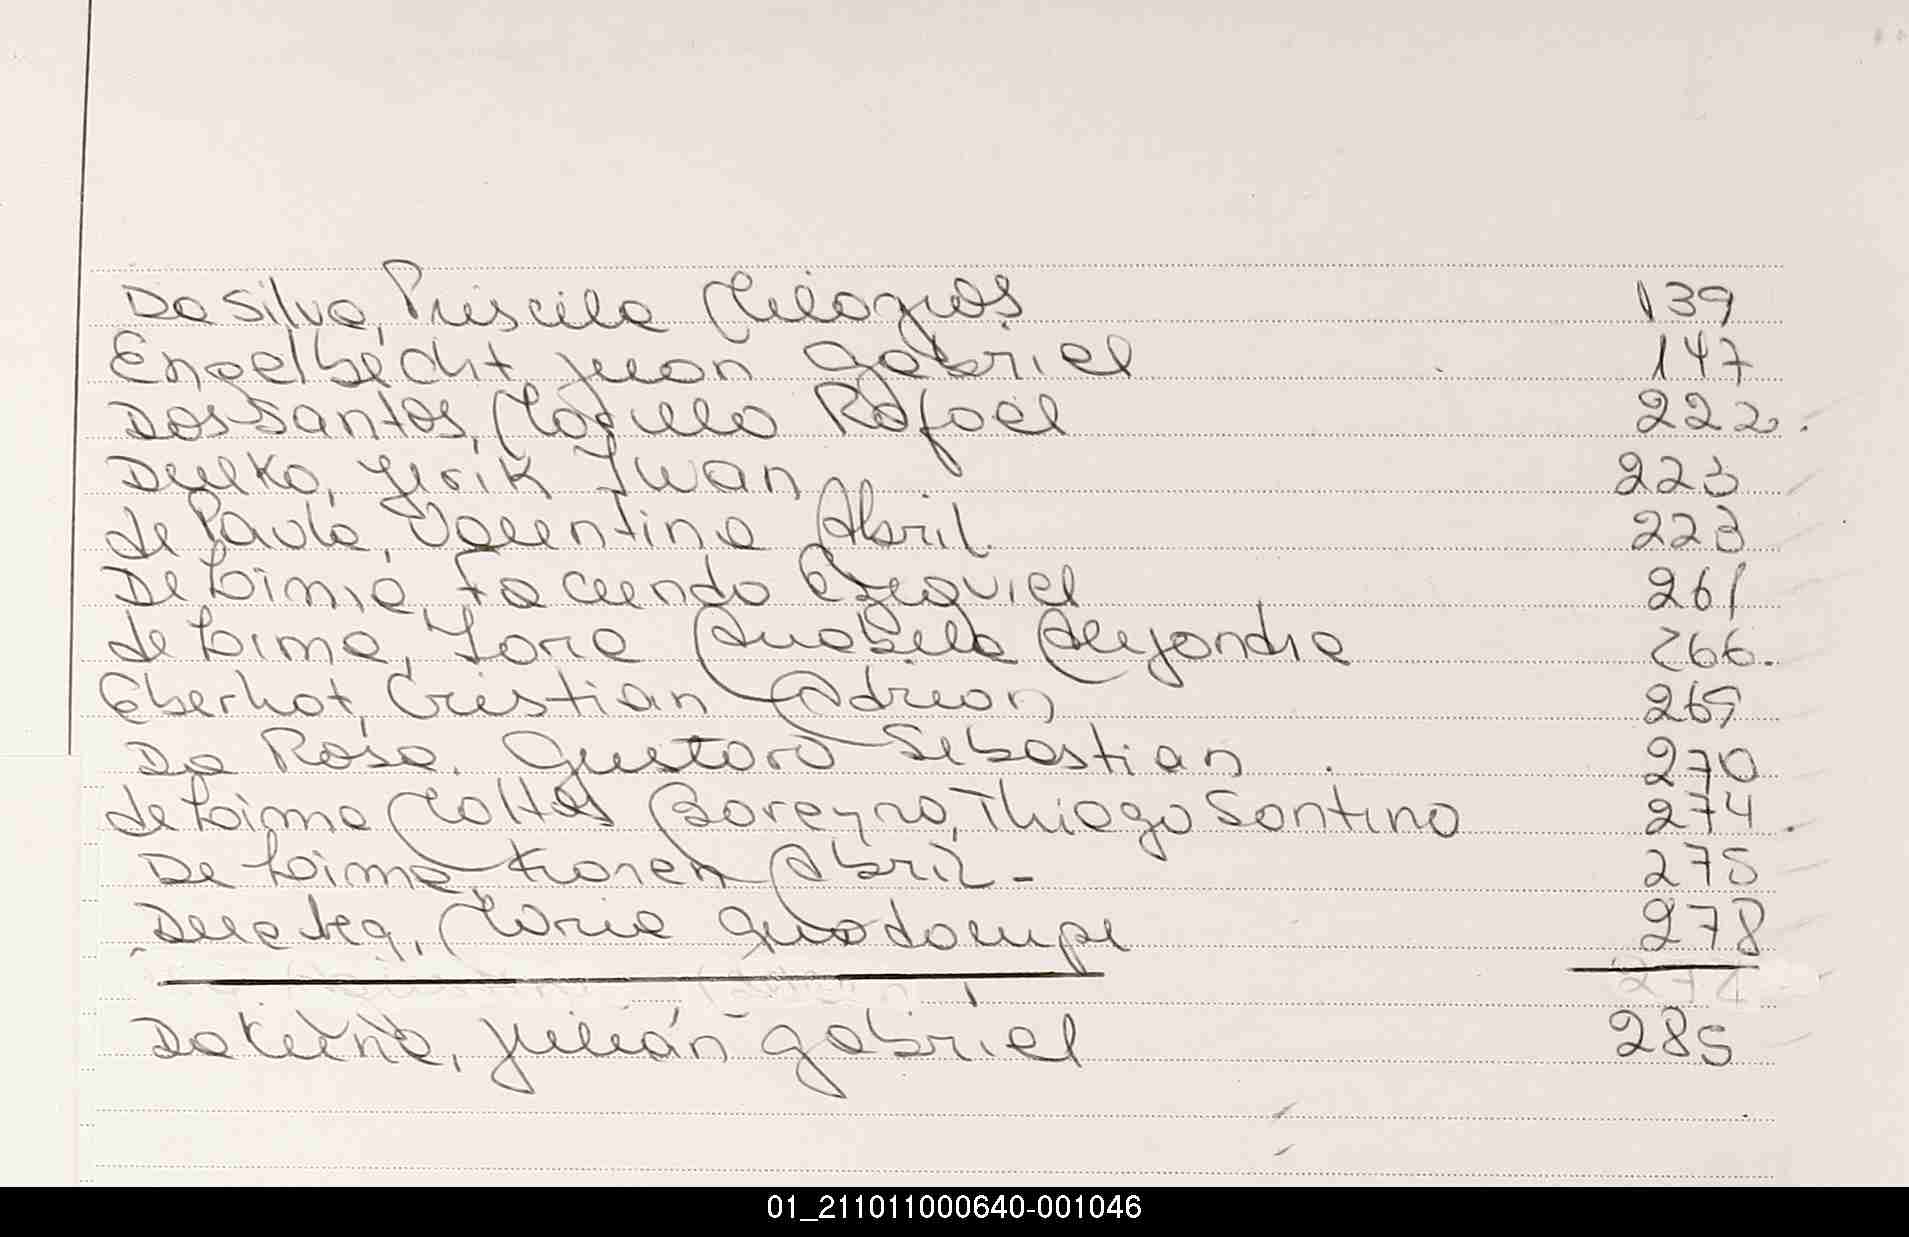 Da Silva, Priscila Milagros 139
Engelbécht Juan Gabriel 147
Dos Santos, Marcelo Rafael 222.
Dulko, Yerik Iwan 223
de Paula, Valentina Abril. 223
De Lima, Facundo Ezequiel 261
de Lima, Iara Anabela Alejandra 266.
Eberhot, Cristian Adrian 269
Da Rosa. Gustavo Sebastian 270
de Lima Mattos Boreyro, Thiago Santino 274.
De Lima, Karen Abril - 275
Maria Guadalupe 278
Julián Gabriel 285
01_211011000640-001046